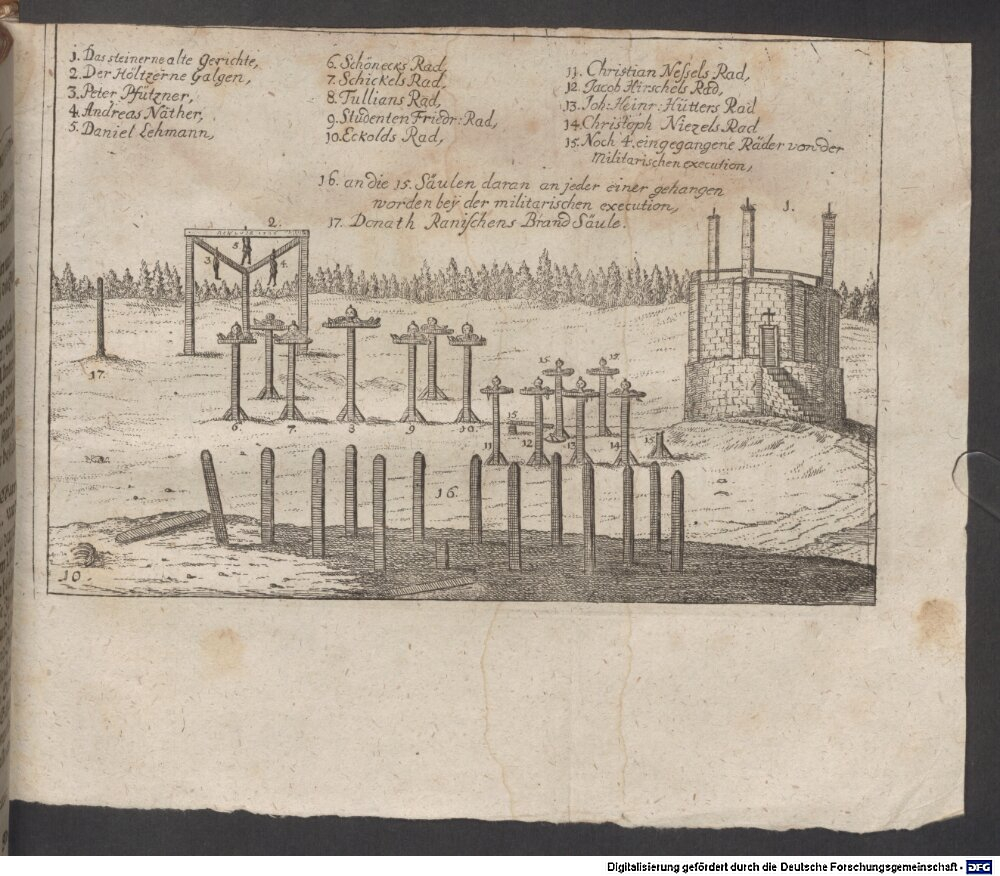 1. Das steinerne alte Gerichte,
2. Der Höltzerne Galgen,
3. Peter Pfützner,
4. Andreas Näther,
5. Daniel Lehmann,
6. Schönecks Rad,
7. Schickels Rad,
8. Tullians Rad,
9. Studenten Friedr: Rad,
10. Eckolds Rad,
11. Christian Neſsels Rad,
12. Jacob Hirschels Rad,
13. Joh: Heinr: Hütters Rad
14. Christoph Niezels Rad
15. Noch 4. eingegangene Räder von der
militarischen execution,
16. an die 15. Säulen daran an jeder einer gehangen
worden beÿ der militarischen execution,
17. Donath Raniſchens Brand Säule.
1.
2.
3
5
4
17.
6
7
8
9
10
15
15
15
11
12
13
14
15
16.
10.
Digitalisierung gefördert durch die Deutsche Forschungsgemeinschaft - DFG